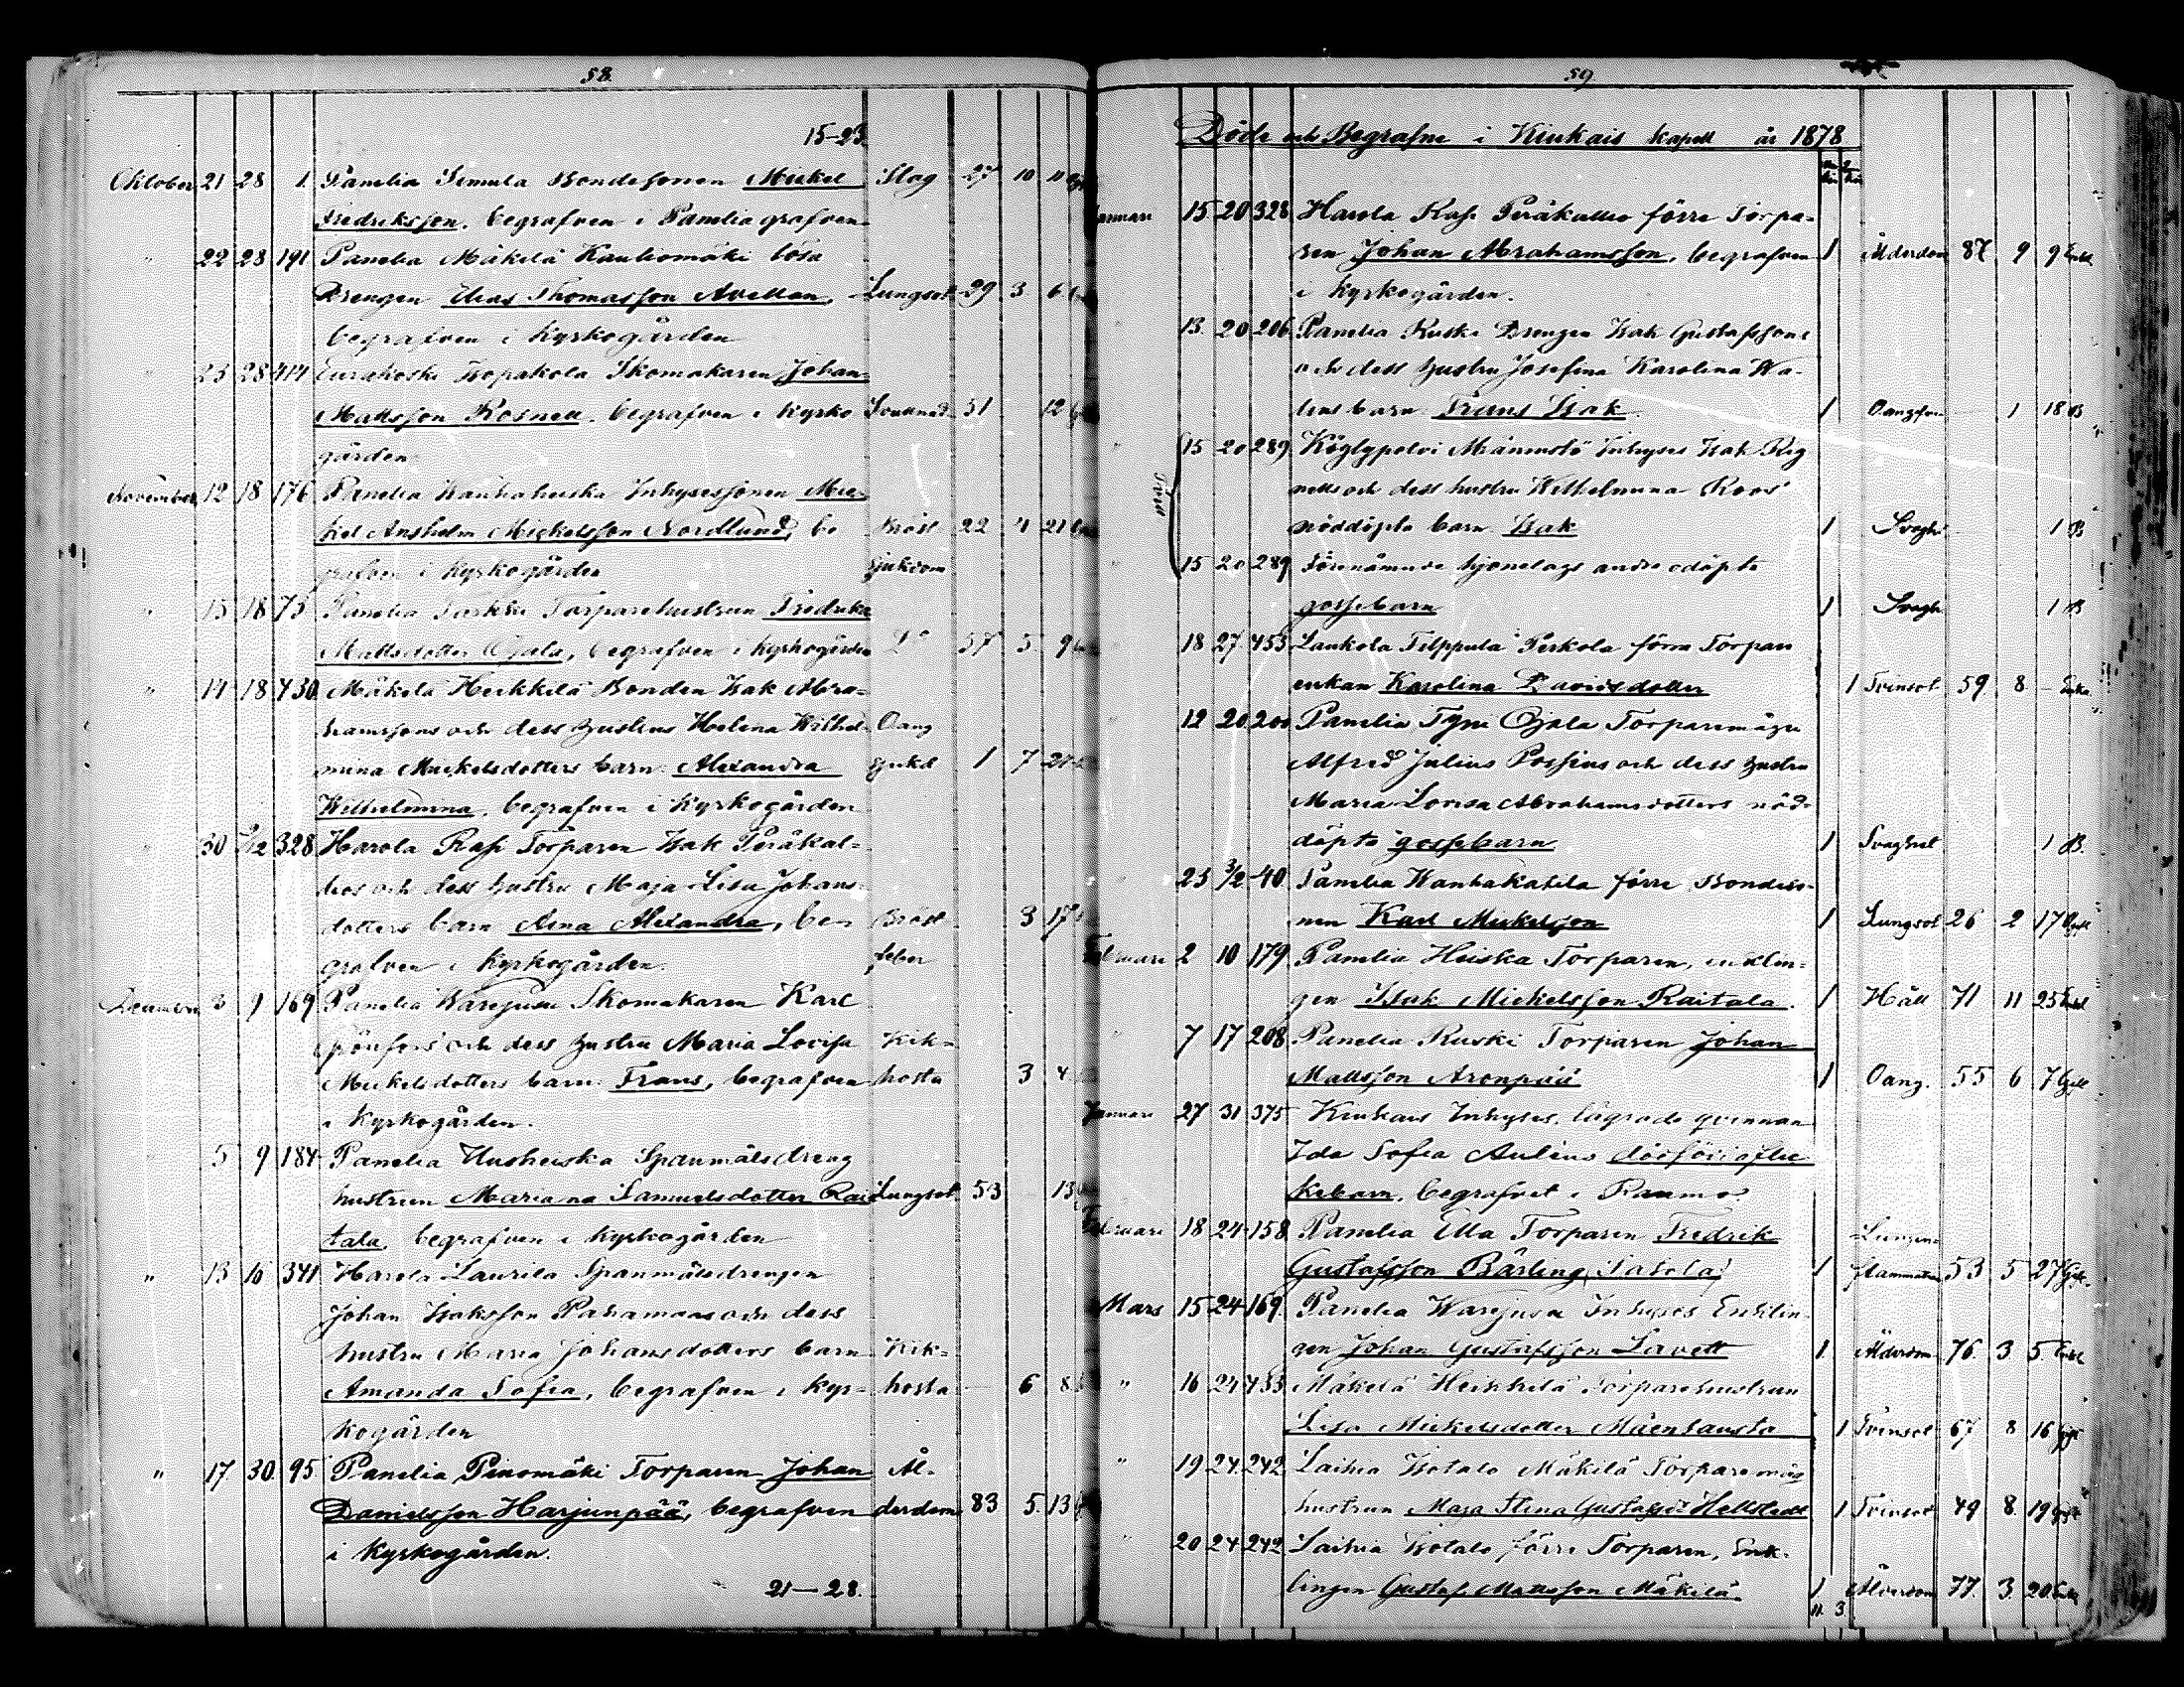 58.
15-23
Oktober 21 28 1. Panelia Simula Bondesonen Mickel Slag 27 10 11
Fredriksson, begrafven i Panelia grafven
" 22 28 191 Panelia Mäkilä Kauliomäki lösa
Drengen Elias Thomasson Avellan, Lungsot 29 3 6
begrafven i kyrkogården
" 23 28 414 Eurakoski Isopakola Skomakaren Johan
Mattsson Rosnell, begrafven i kyrko 51 12
gården
November 12 18 176 Panelia Inhysessonen Mic-
kel Anshelm Mickelsson Nordlund, be Bröst 22 4 21
grafven i kyrkogården sjukdom
" 15 18 75 Panelia Torparehustrun Fredrika
Mattsdotter Ojala, begrafven i kyrkogården Do 57 5 9
" 14 18 430 Mäkelä Heikkilä Bonden Isak Abra-
hamssons och dess hustrus Helena Wilhel- Oang
mina Mickelsdotters barn Alexandra sjukd 1 7
Wilhelmina, begrafven i kyrkogården
" 30 2/12 328 Harola Rasi Torparen Isak Peräkal-
lios och dess hustru Maja Lisa Johans-
dotters barn Aina Alexandra, be- Bröst 3 17
grafven i kyrkogården. feber
December 3 9 169 Panelia Warjusu Skomakaren Karl
och dess hustru Maria Lovisa Kik-
Mickelsdotters barn Frans, begrafven hosta 3 4
i kyrkogården.
5 9 184 Panelia Uusheiska Spanmålsdreng
hustrun Mariana Samuelsdotter Rai Lungsot 53 13
tala, begrafven i kyrkogården
" 13 16 341 Harola Laurila Spanmålsdrengen
Johan Isaksson Pahamaas och dess
hustru Maria Johansdotters barn Kik-
Amanda Sofia, begrafven i kyr- hosta - 6 8
kogården
" 17 30 95 Panelia Pinomäki Torparen Johan Ål-
Danielsson Harjunpää, begrafven derdom 83 5. 13
i kyrkogården.
21-28.
59.
Döde och Begrafne i Kiukais kapell år 1878
Januari 15 20 328 Harola Rasi Peräkallio förre Torpa-
ren Johan Abrahamsson, begrafven 1 Ålderdom 87 9 9 Enkl
i kyrkogården.
13 20 206 Panelia Ruski Drengen Isak Gustafssons
och dess hustru Josefina Karolina Wa-
lins barn Frans Isak 1 1 18 B
" 15 20 289 Köylypolvi Männistö Inhyses Isak Rig
nells och dess hustru Wilhelmina Roos'
nöddöpta barn Isak 1 Svagh 1 B
15 20 289 Förenämnde hjonelags andre odöpte
gossebarn 1 Svagh 1 B
18 27 453 Laukola Filppula Peskola förra Torpare
enkan Karolina Davidsdotter 1 Tvinsot 59 8 - Enka
12 20 200 Panelia Tyni Ojala Torparemågen
Alfred Julius Possius och dess hustru
Maria Lovisa Abrahamsdotters nöd-
döpta gossebarn 1 Svaghet 1 B.
23 3/2 40 Panelia Wanhakatila förre Bondeso-
nen Karl Mickelsson 1 Lungsot 26 2 17 Ogift
Februari 2 10 179 Panelia Heiska Torparen, enklin-
gen Isak Mickelsson Raitala. 1 Håll 71 11 25 Enkl
" 7 17 208 Panelia Ruski Torparen Johan
Mattsson Aronpää 1 Oang. 55 6 7 Gift
Januari 27 31 375 Kiukais Inhyses. lägrade qvinnan
Ida Sofia Aulins
kebarn, begrafvet i Raumo
Februari 18 24 158 Panelia Ella Torparen Fredrik Lungin-
Gustafsson Bärling, 1 flammation 53 5 27 Gift
Mars 15 24 169. Panelia Warjusu Inhyses Enklin-
gen Johan Gustafsson Lavett 1. Ålderdom 76. 3 5. Enkl
" 16 24 433 Mäkelä Heikkilä Torparehustrun
Lisa Mickelsdotter 1 Tvinsot 67 8 16 Gift
" 19 24 242 Laihia Isotalo Mäkilä Torparemåg
hustrun Maja Stina Gustafsd. Hellstedt 1 Tvinsot 49 8. 19 Gift
" 20 24 242 Laihia Isotalo förre Torparen, Enk-
lingen Gustaf Mattsson Mäkilä 1 Ålderdom 77. 3. 20 Enkl
11. 3